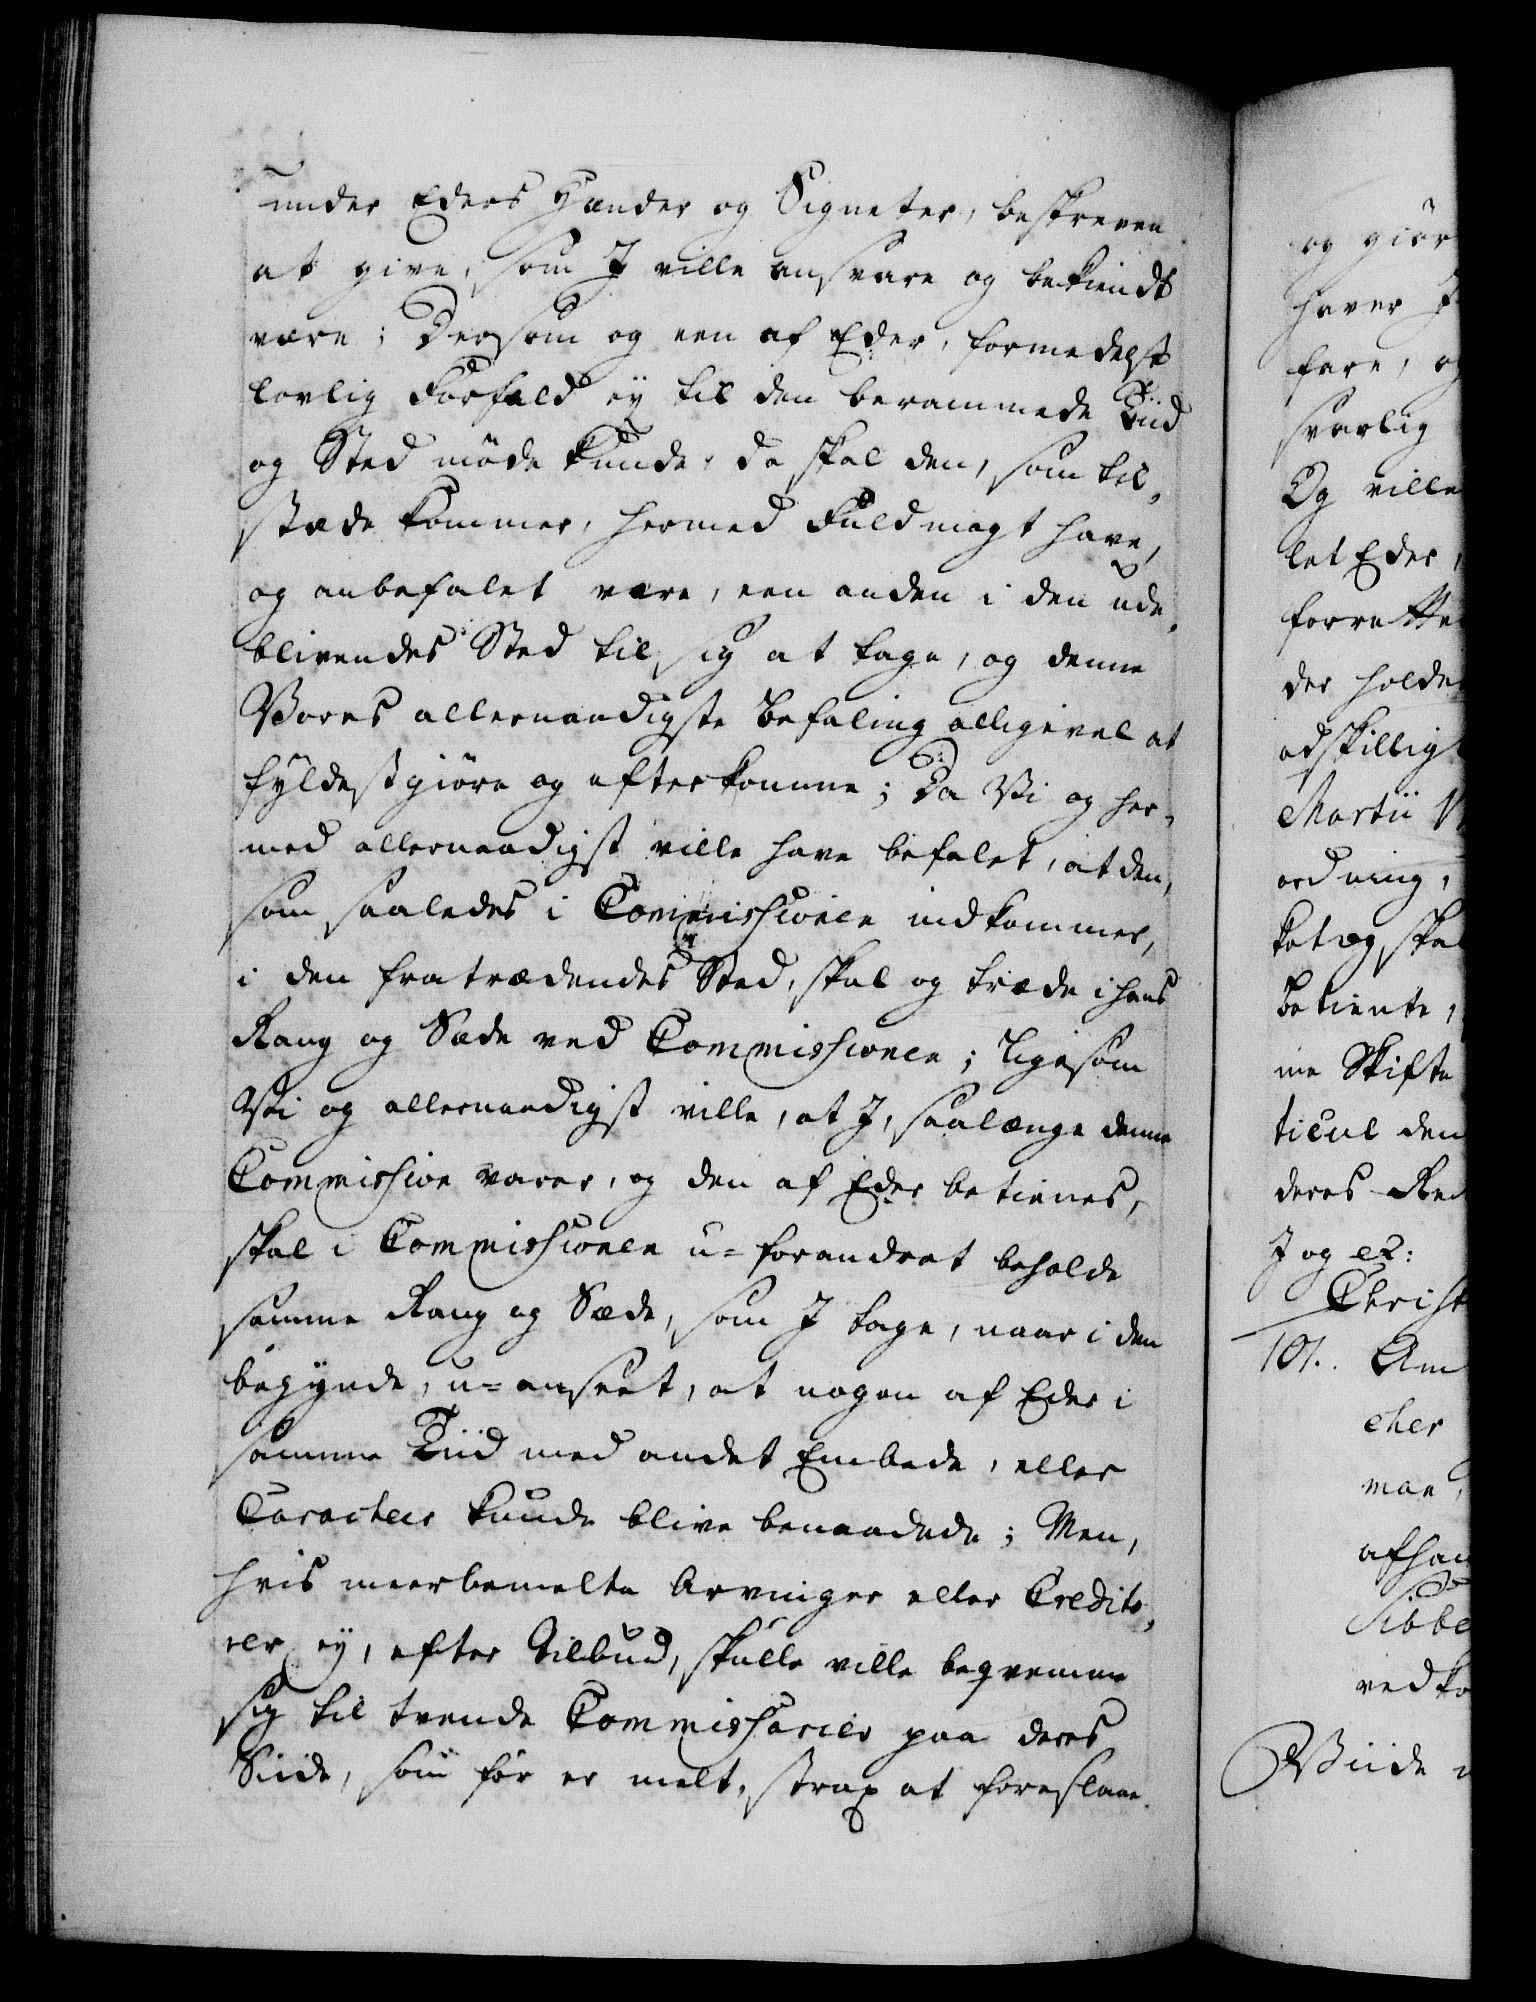 under Eders Hænder og Signeter, beskreven
at give, som I ville ansvare og bekiendt
være; Dersom og een af Eder, formedelst
lovlig Forfald ey til den berammede Tiid
og Sted møde kunde, da skal den, som til-
stæde kommer, hermed Fuldmagt have,
og anbefalet være, een anden i den ude-
blivendes Sted til sig at tage, og denne
Vores allernaadigste Befaling alligevel at
fyldestgiøre og efterkomme; Da Vi og her-
med allernaadigst ville have befalet, at den,
som saaledes i Commissionen indkommer,
i den fratrædendes Sted, skal og træde i hans
Rang og Sæde ved Commissionen; ligesom
Vi og allernaadigst ville, at I, saalænge denne
Commission varer, og den af Eder betienes,
skal i Commissionen u-forandret beholde
samme Rang og Sæde, som I tage, naar i den
begynde, u-anseet, at nogen af Eder i
samme Tiid med andet Embede, eller
Caracteer kunde blive benaadede; Men,
hvis meerbemelte Arvinger eller Credito-
rer ey, efter Tilbud, skulle ville beqvemme
sig til tvende Commissarier paa deres
Siide, som før er melt, strax at foreslaae
og giør
haver I
fare, og
svarlig
Og ville
let Eder,
forrette
der holde
adskillig
Martii
ordning,
ket og skal
betiente,
ne Skifte
ticul den
deres Re
I og et:
Christ
101. Am
cher
man,
afhan
Sibbe
vedko
Viide